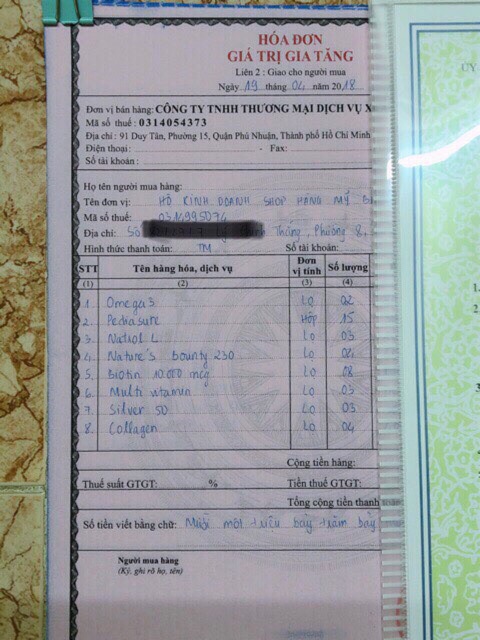 HÓA ĐƠN
GIÁ TRỊ GIA TĂNG
Liên 2 : Giao cho người mua
Ngày 19 tháng 04 năm 2018
Đơn vị bán hàng: CÔNG TY TNHH THƯƠNG MẠI DỊCH VỤ X
Mã số thuế : 0314054373
Địa chỉ : 91 Duy Tân, Phường 15, Quận Phú Nhuận, Thành phố Hồ Chí Minh
Điện thoại: - Fax:
Số tài khoản:
Họ tên người mua hàng:
Tên đơn vị: HỘ KINH DOANH SHOP HÀNG MỸ
Mã số thuế: 0314995074
Địa chỉ: Số Thắng, Phường 8,
Hình thức thanh toán: TM Số tài khoản:
STT Tên hàng hóa, dịch vụ Đơn vị tính Số lượng
(1) (2) (3) (4)
1. Omega 3 Lọ 02
2. Pediasure Hộp 15
3. Natrol L. Lọ 03
4. Nature's Bounty 230 Lọ 02
5. Biotin 10.000 mcg Lọ 08
6. Multi vitamin Lọ 03
7. Silver 50 Lọ 03
8. Collagen Lọ 04
Cộng tiền hàng:
Thuế suất GTGT: % Tiền thuế GTGT:
Tổng cộng tiền thanh
Số tiền viết bằng chữ: Mười một triệu bảy trăm bảy
Người mua hàng
(Ký, ghi rõ họ, tên)
ỦY